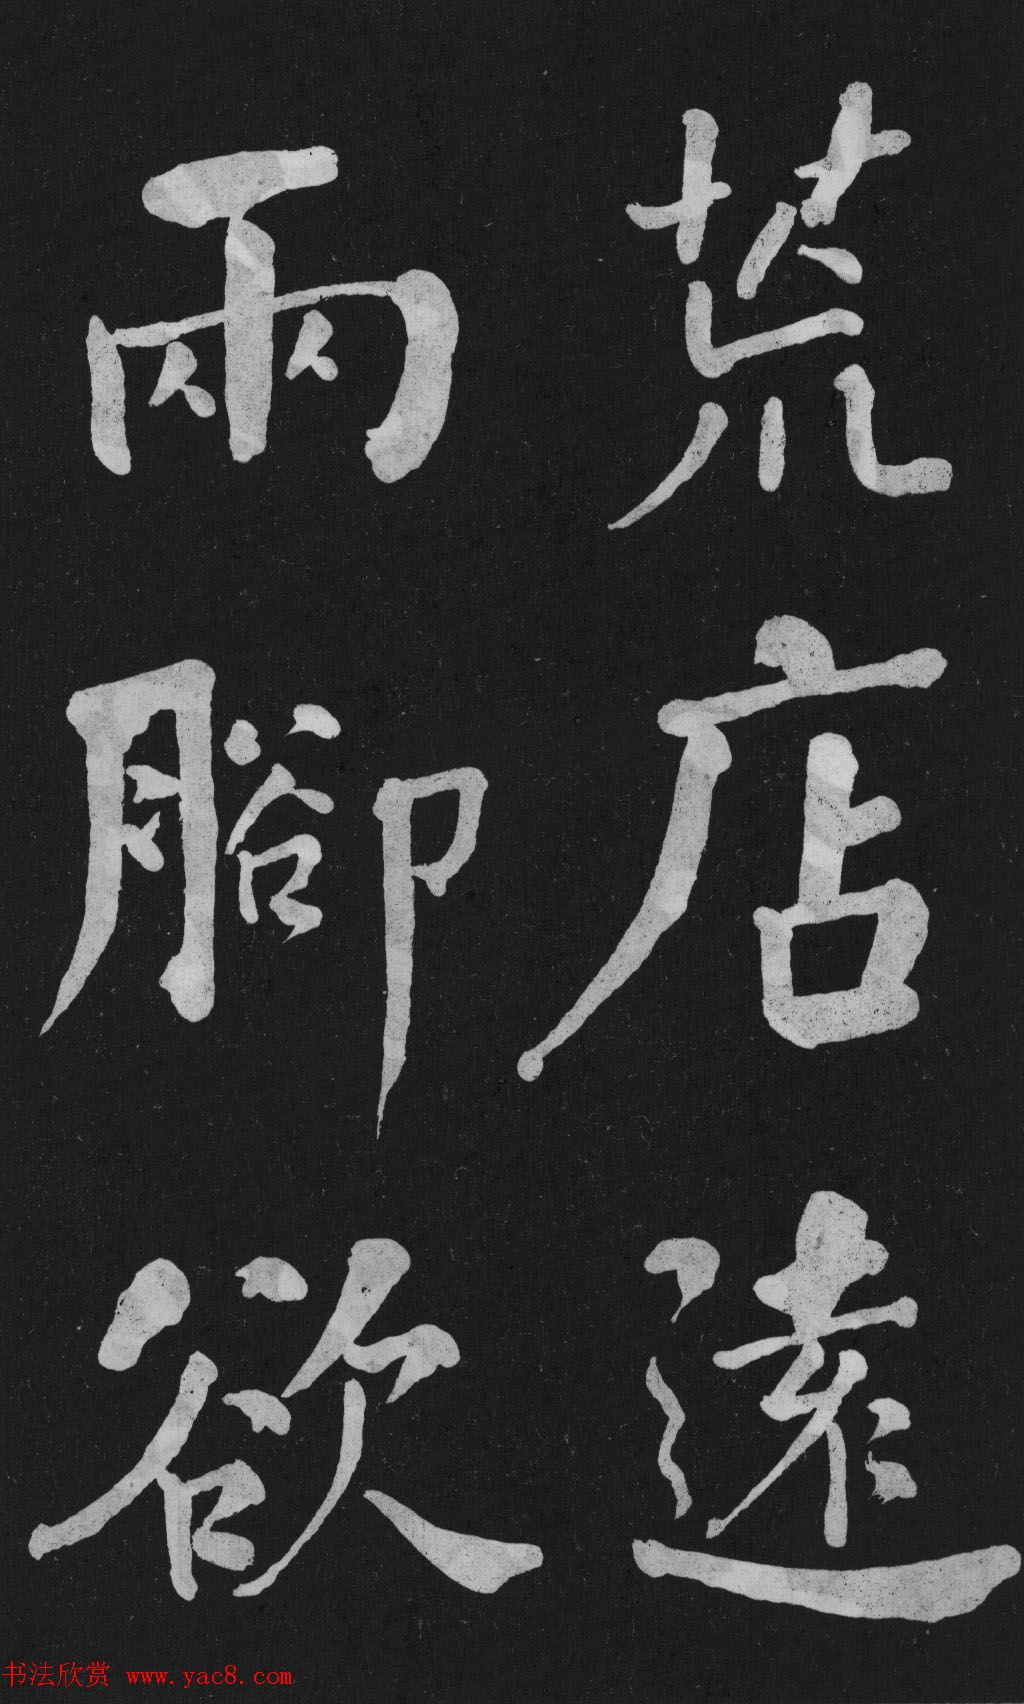 荒店遠
雨腳欲
书法欣赏 www.yac8.com